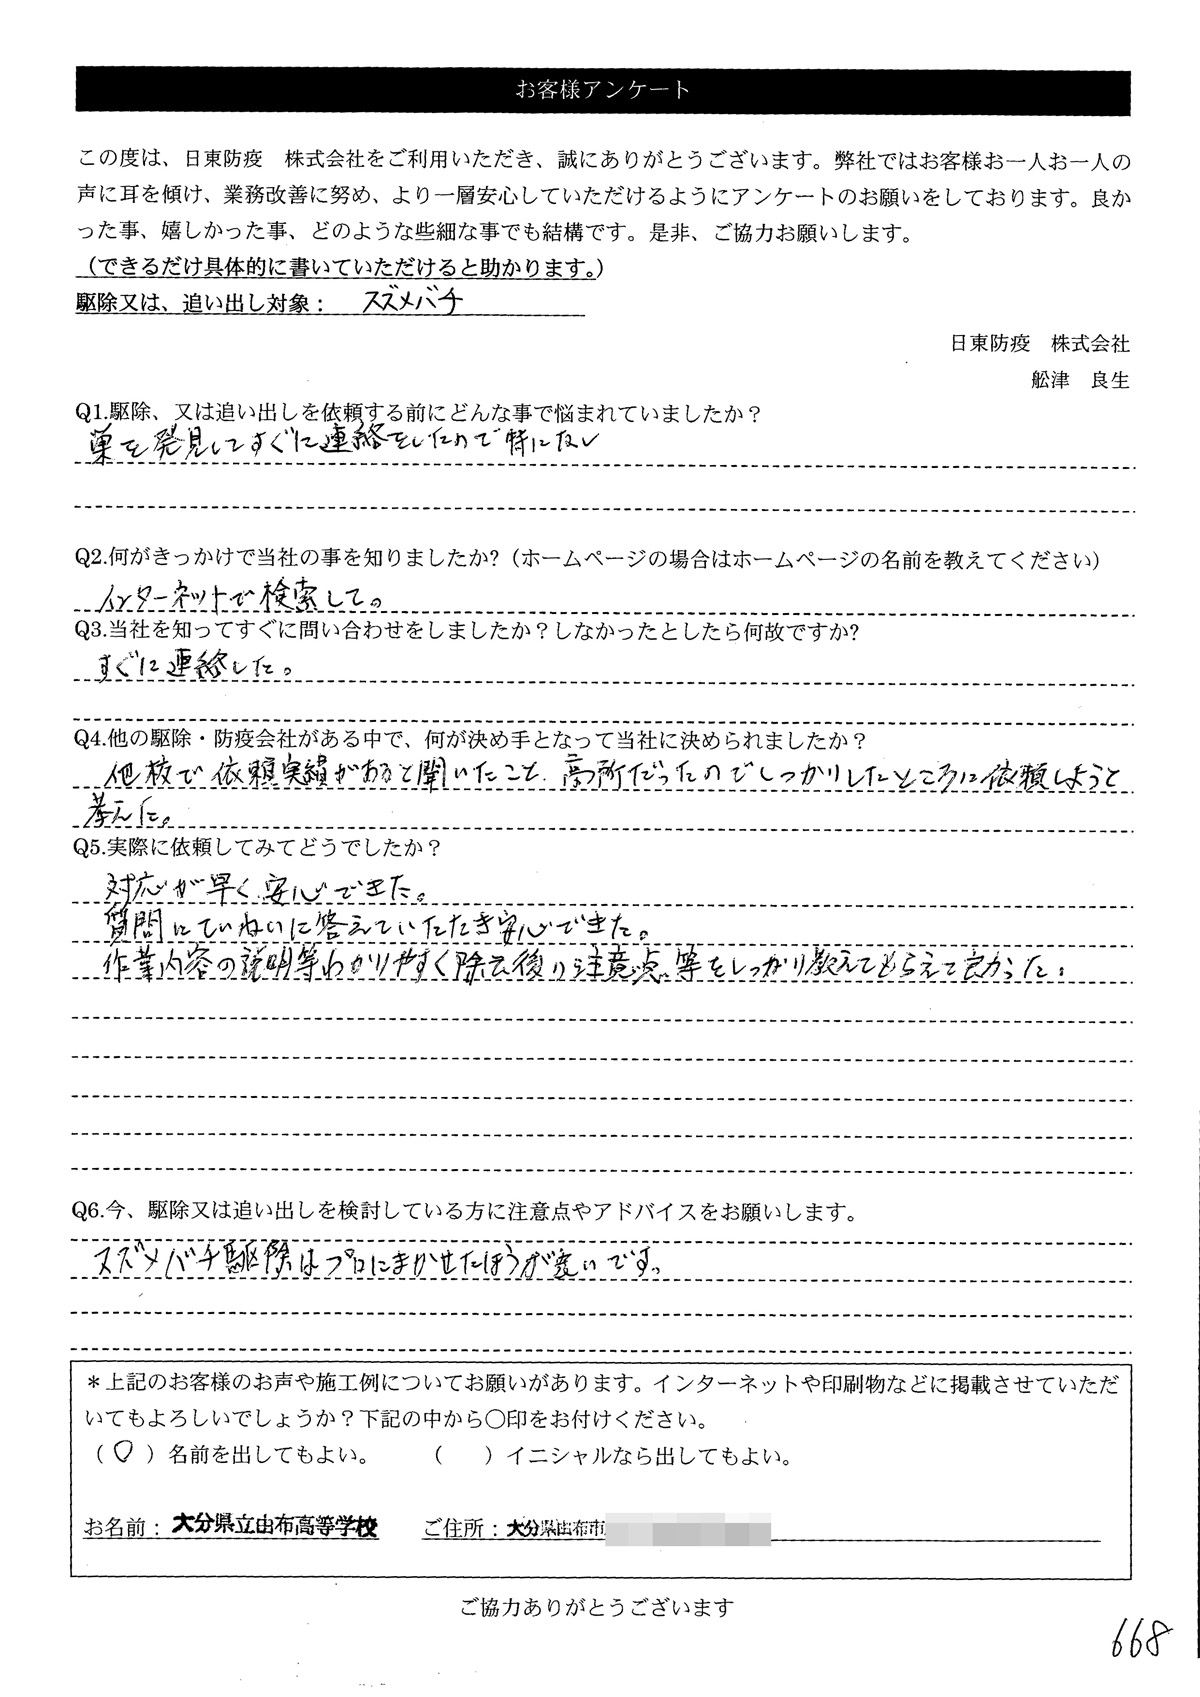 お客様アンケート
この度は、日東防疫　株式会社をご利用いただき、誠にありがとうございます。弊社ではお客様お一人お一人の
声に耳を傾け、業務改善に努め、より一層安心していただけるようにアンケートのお願いをしております。良か
った事、嬉しかった事、どのような些細な事でも結構です。是非、ご協力お願いします。
（できるだけ具体的に書いていただけると助かります。）
駆除又は、追い出し対象： スズメバチ
日東防疫　株式会社
舩津　良生
Q1.駆除、又は追い出しを依頼する前にどんな事で悩まれていましたか？
巣を発見してすぐに連絡をしたので特にない
Q2.何がきっかけで当社の事を知りましたか?（ホームページの場合はホームページの名前を教えてください）
インターネットで検索して。
Q3.当社を知ってすぐに問い合わせをしましたか？しなかったとしたら何故ですか?
すぐに連絡した。
Q4.他の駆除・防疫会社がある中で、何が決め手となって当社に決められましたか？
他校で依頼実績があると聞いたこと、高所だったのでしっかりしたところに依頼しようと
考えた。
Q5.実際に依頼してみてどうでしたか？
対応が早く、安心できた。
質問にていねいに答えていただき安心できた。
作業内容の説明等わかりやすく除去後の注意点等をしっかり教えてもらえて良かった。
Q6.今、駆除又は追い出しを検討している方に注意点やアドバイスをお願いします。
スズメバチ駆除はプロにまかせたほうが良いです。
＊上記のお客様のお声や施工例についてお願いがあります。インターネットや印刷物などに掲載させていただ
いてもよろしいでしょうか？下記の中から○印をお付けください。
（○）名前を出してもよい。　（　）イニシャルなら出してもよい。
お名前：大分県立由布高等学校　ご住所：大分県由布市
ご協力ありがとうございます
668